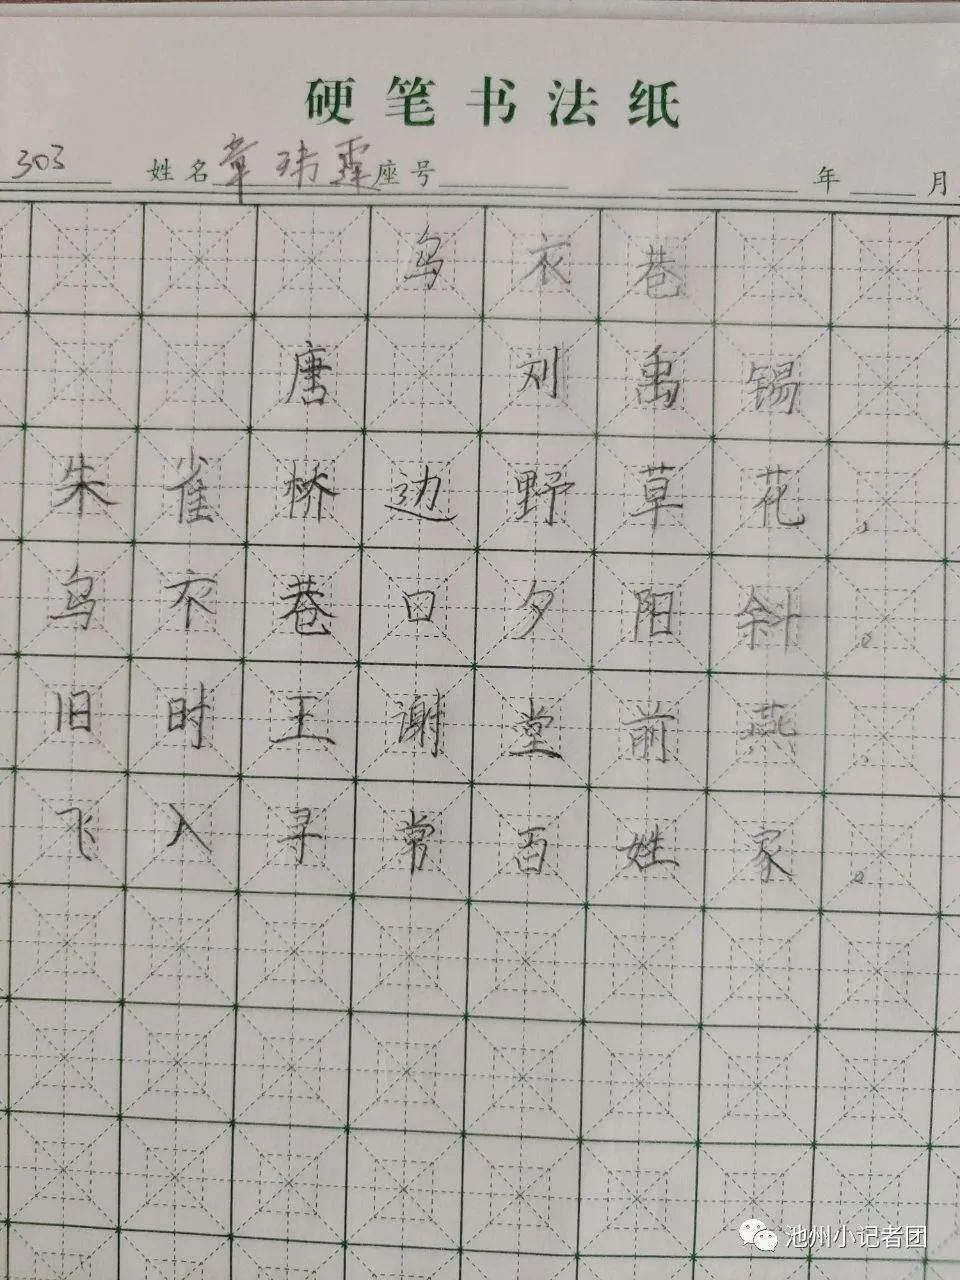 硬笔书法纸
303 姓名章玮霆座号 年 月
乌衣巷
唐 刘禹锡
朱雀桥边野草花，
乌衣巷口夕阳斜。
旧时王谢堂前燕，
飞入寻常百姓家。
池州小记者团